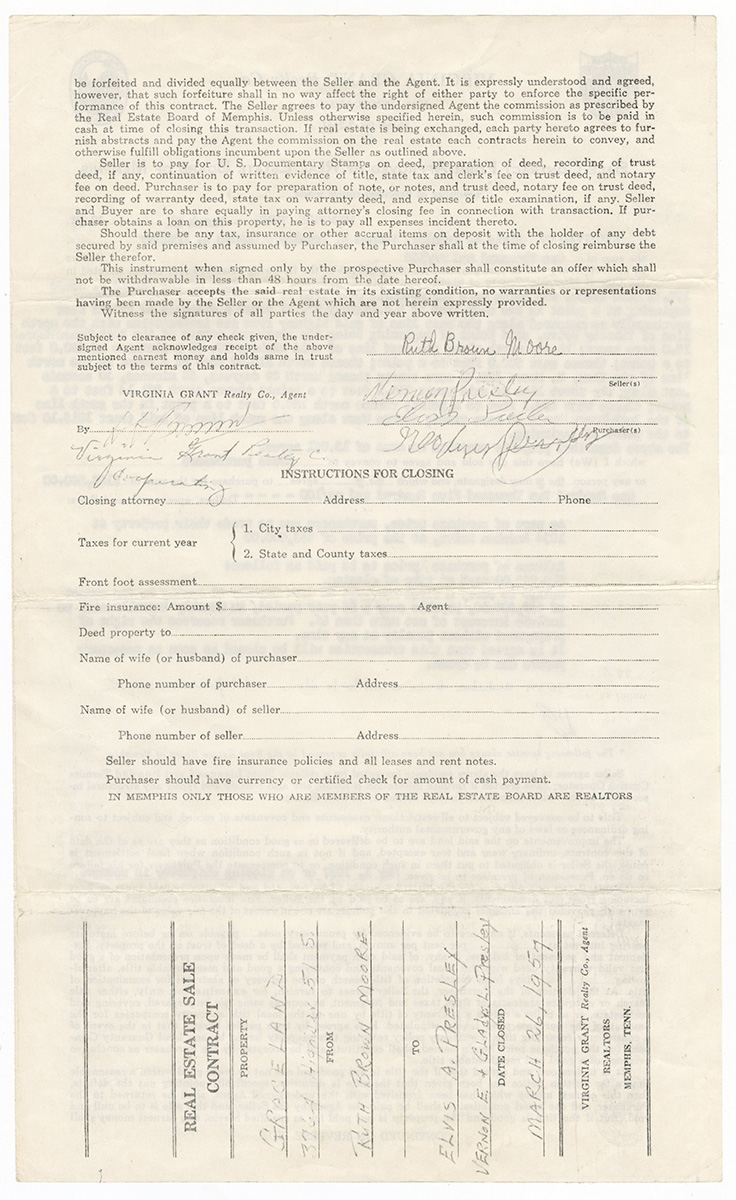 be forfeited and divided equally between the Seller and the Agent. It is expressly understood and agreed,
however, that such forfeiture shall in no way affect the right of either party to enforce the specific per-
formance of this contract. The Seller agrees to pay the undersigned Agent the commission as prescribed by
the Real Estate Board of Memphis. Unless otherwise specified herein, such commission is to be paid in
cash at time of closing this transaction. If real estate is being exchanged, each party hereto agrees to fur-
nish abstracts and pay the Agent the commission on the real estate each contracts herein to convey, and
otherwise fulfill obligations incumbent upon the Seller as outlined above.
Seller is to pay for U. S. Documentary Stamps on deed, preparation of deed, recording of trust
deed, if any, continuation of written evidence of title, state tax and clerk's fee on trust deed, and notary
fee on deed. Purchaser is to pay for preparation of note, or notes, and trust deed, notary fee on trust deed,
recording of warranty deed, state tax on warranty deed, and expense of title examination, if any. Seller
and Buyer are to share equally in paying attorney's closing fee in connection with transaction. If pur-
chaser obtains a loan on this property, he is to pay all expenses incident thereto.
Should there be any tax, insurance or other accrual items on deposit with the holder of any debt
secured by said premises and assumed by Purchaser, the Purchaser shall at the time of closing reimburse the
Seller therefor.
This instrument when signed only by the prospective Purchaser shall constitute an offer which shall
not be withdrawable in less than 48 hours from the date hereof.
The Purchaser accepts the said real estate in its existing condition, no warranties or representations
having been made by the Seller or the Agent which are not herein expressly provided.
Witness the signatures of all parties the day and year above written.
Subject to clearance of any check given, the under-
signed Agent acknowledges receipt of the above
mentioned earnest money and holds same in trust
subject to the terms of this contract.
VIRGINIA GRANT Realty Co., Agent
By
Virginia Grant Realty C.
Cooperating
Ruth Brown Moore
Seller(s)
Vernon Presley
Elvis Presley
Gladys Presley
Purchaser(s)
INSTRUCTIONS FOR CLOSING
Closing attorney Address Phone
Taxes for current year
1. City taxes
2. State and County taxes
Front foot assessment
Fire insurance: Amount $ Agent
Deed property to
Name of wife (or husband) of purchaser
Phone number of purchaser Address
Name of wife (or husband) of seller
Phone number of seller Address
Seller should have fire insurance policies and all leases and rent notes.
Purchaser should have currency or certified check for amount of cash payment.
IN MEMPHIS ONLY THOSE WHO ARE MEMBERS OF THE REAL ESTATE BOARD ARE REALTORS
REAL ESTATE SALE
CONTRACT
PROPERTY
GRACELAND
3764 Highway 51 S.
FROM
RUTH BROWN MOORE
TO
ELVIS A. PRESLEY
VERNON E + GLADYS L. Presley
DATE CLOSED
MARCH 26, 1957
VIRGINIA GRANT Realty Co., Agent
REALTORS
MEMPHIS, TENN.